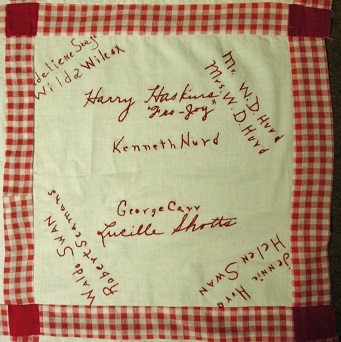 Wilda Wilcox
Mr. W.D. Hurd
Mrs. W.D. Hurd
Harry Haskins
Kenneth Hurd
George Carr
Lucille Shotts
Waldo SWAN
Robert Seamans
Jennie Hurd
Helen SWAN